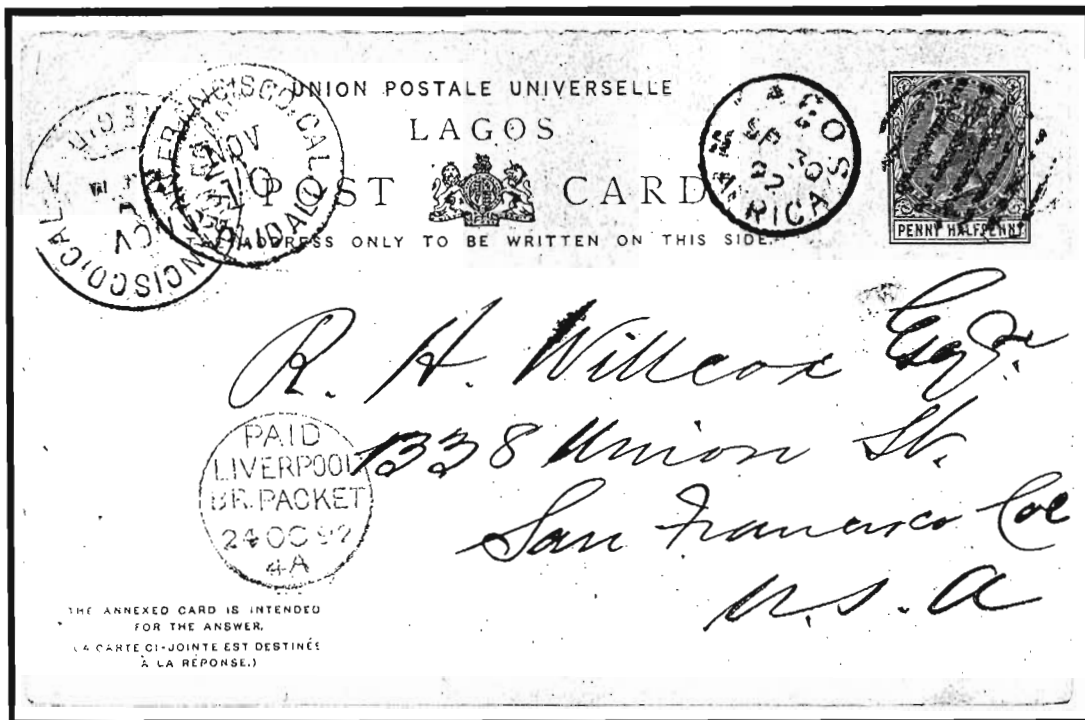 UNION POSTALE UNIVERSELLE
LAGOS
POST CARD
THE ADDRESS ONLY TO BE WRITTEN ON THIS SIDE.
PENNY HALFPENNY
LAGOS
W. AFRICA
NOV
10
PAID ALL
R. H. Willcox Esqr.
1338 Union St.
San Francisco Cal
U.S.A
PAID
LIVERPOOL
BR. PACKET
24 OC 92
4A
THE ANNEXED CARD IS INTENDED
FOR THE ANSWER.
(LA CARTE CI-JOINTE EST DESTINÉE
À LA RÉPONSE.)